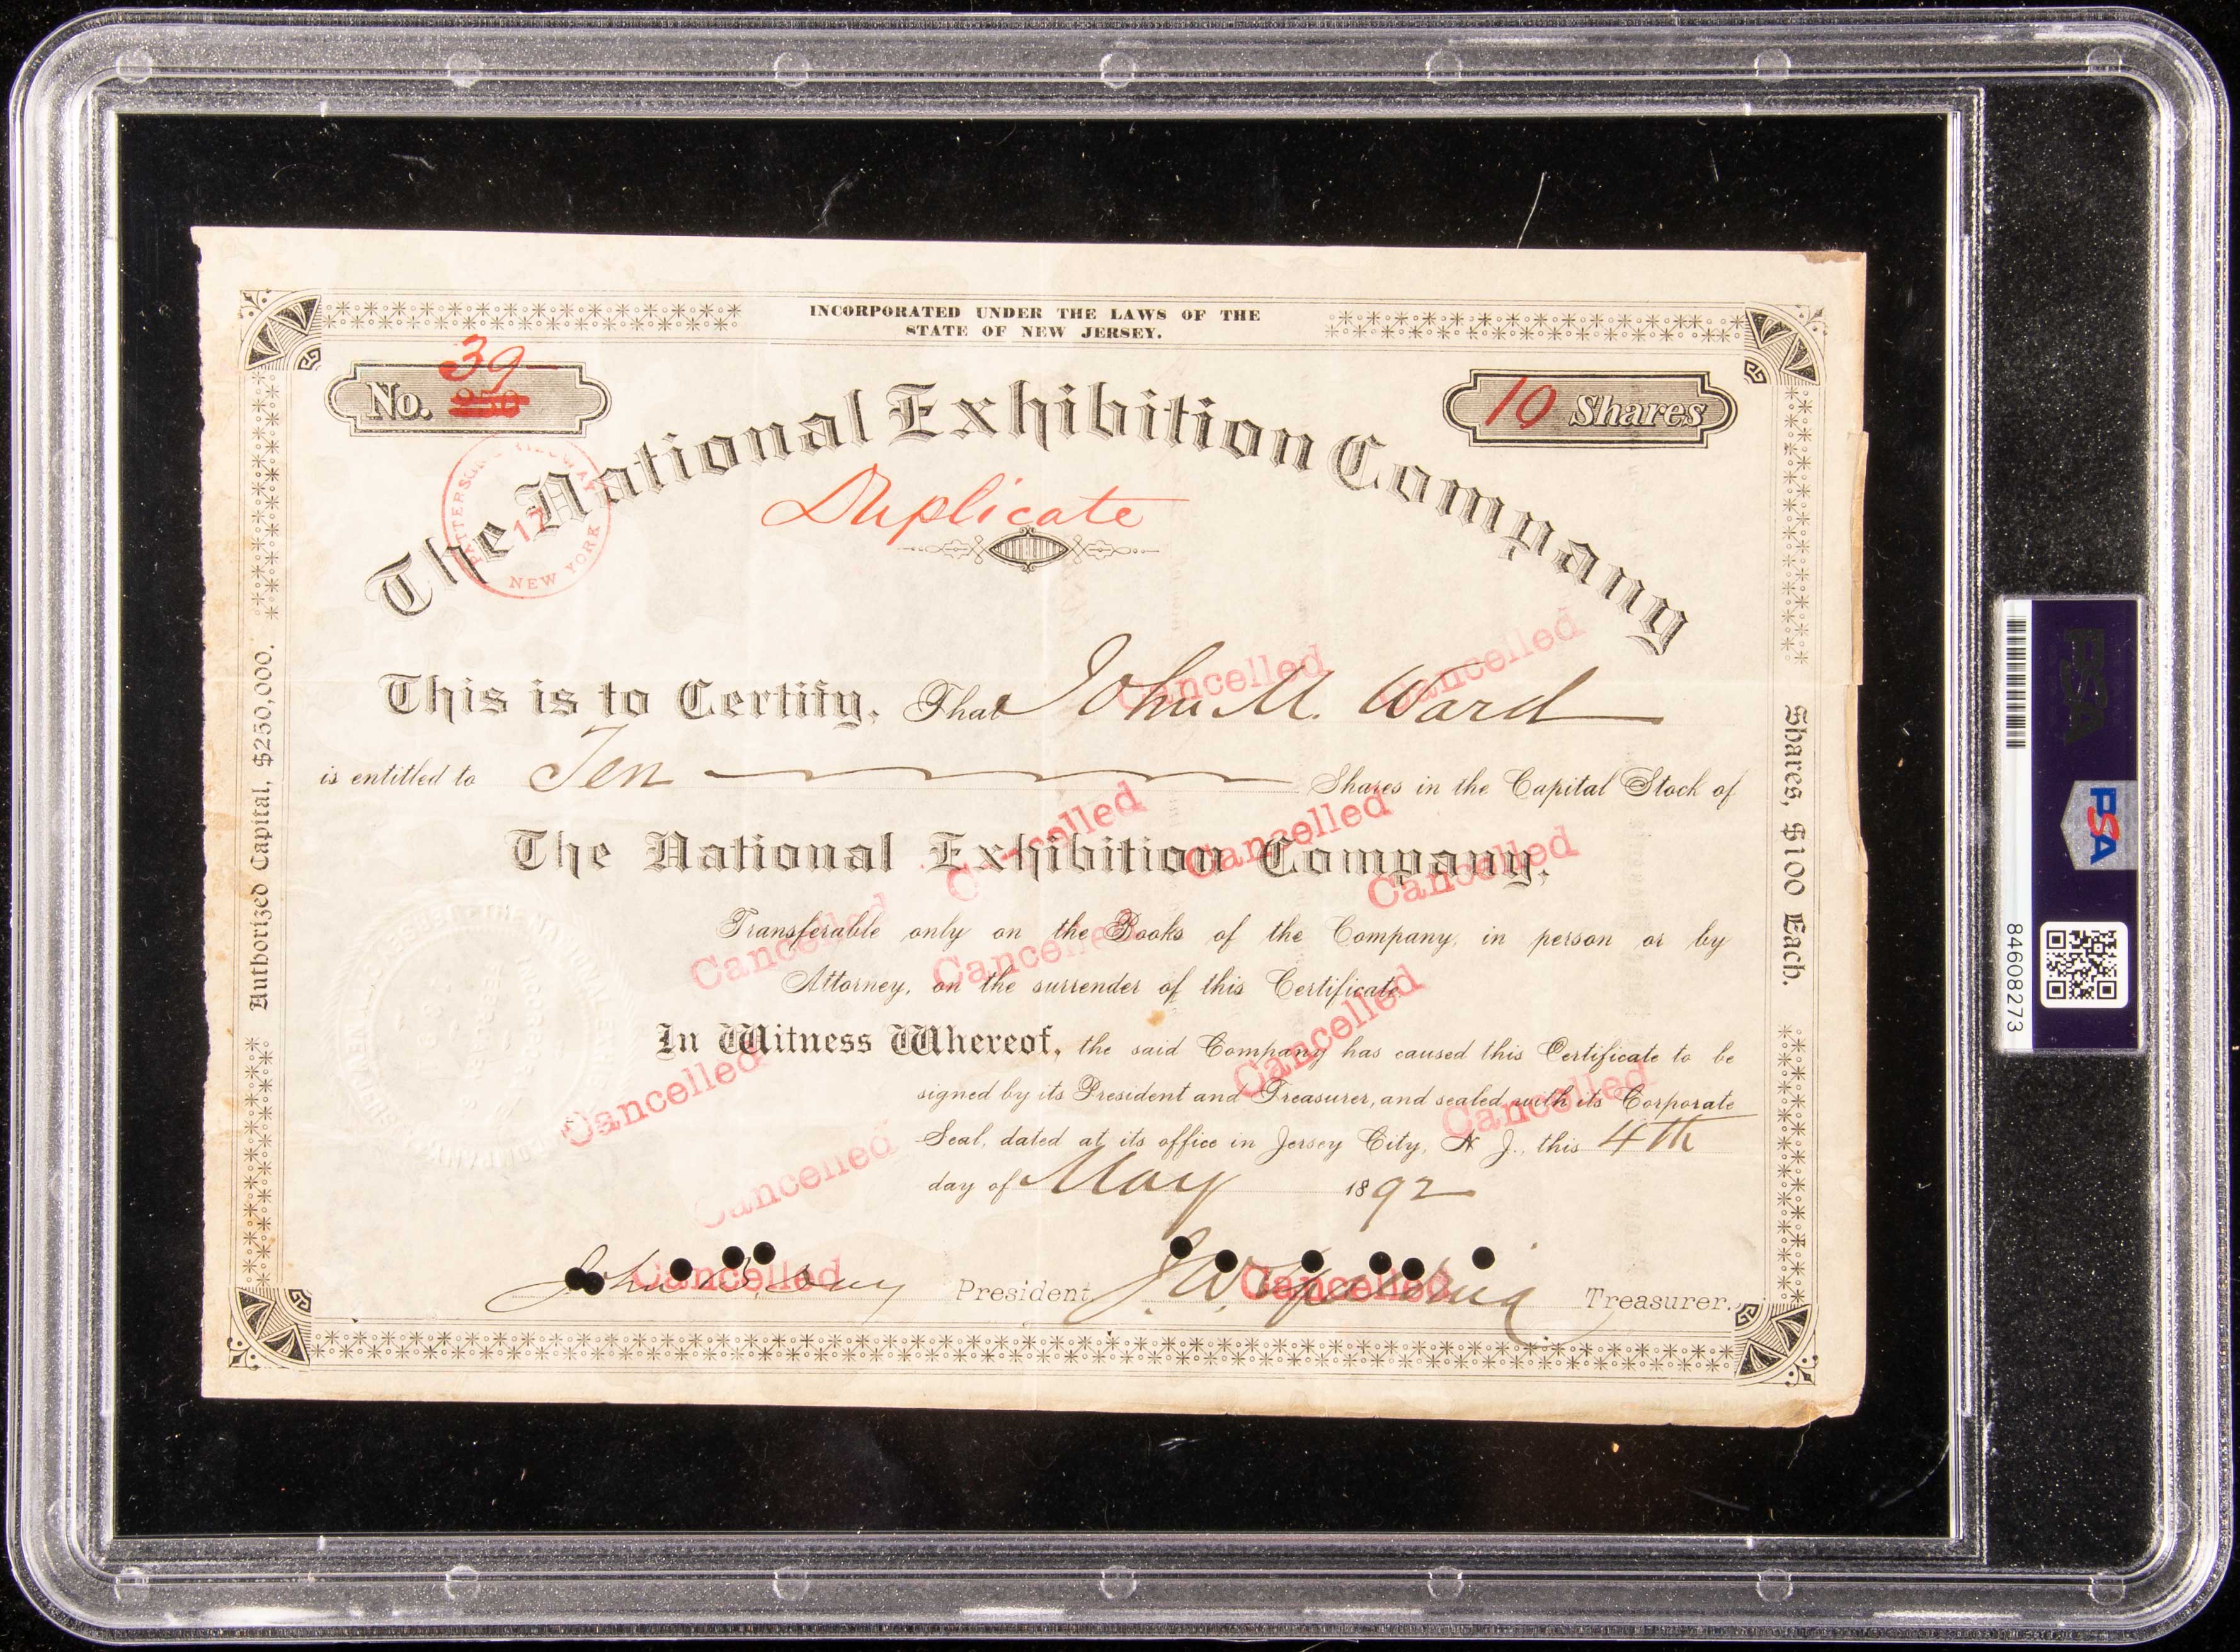 INCORPORATED UNDER THE LAWS OF THE
STATE OF NEW JERSEY.
39
No. 250
10 Shares
The National Exhibition Company
Duplicate
17
NEW YORK
This is to Certify, That John M. Ward
is entitled to Ten Shares in the Capital Stock of
The National Exhibition Company,
Transferable only on the Books of the Company, in person or by
Attorney, on the surrender of this Certificate
In Witness Whereof, the said Company has caused this Certificate to be
signed by its President and Treasurer, and sealed with its Corporate
Seal, dated at its office in Jersey City, N. J., this 4th
day of May 1892
John B. Day President
J. W. Spalding Treasurer.
Authorized Capital, $250,000.
Shares, $100 Each.
Cancelled
Cancelled
Cancelled
Cancelled
Cancelled
Cancelled
Cancelled
Cancelled
Cancelled
Cancelled
Cancelled
Cancelled
Cancelled
PSA
PSA
84608273